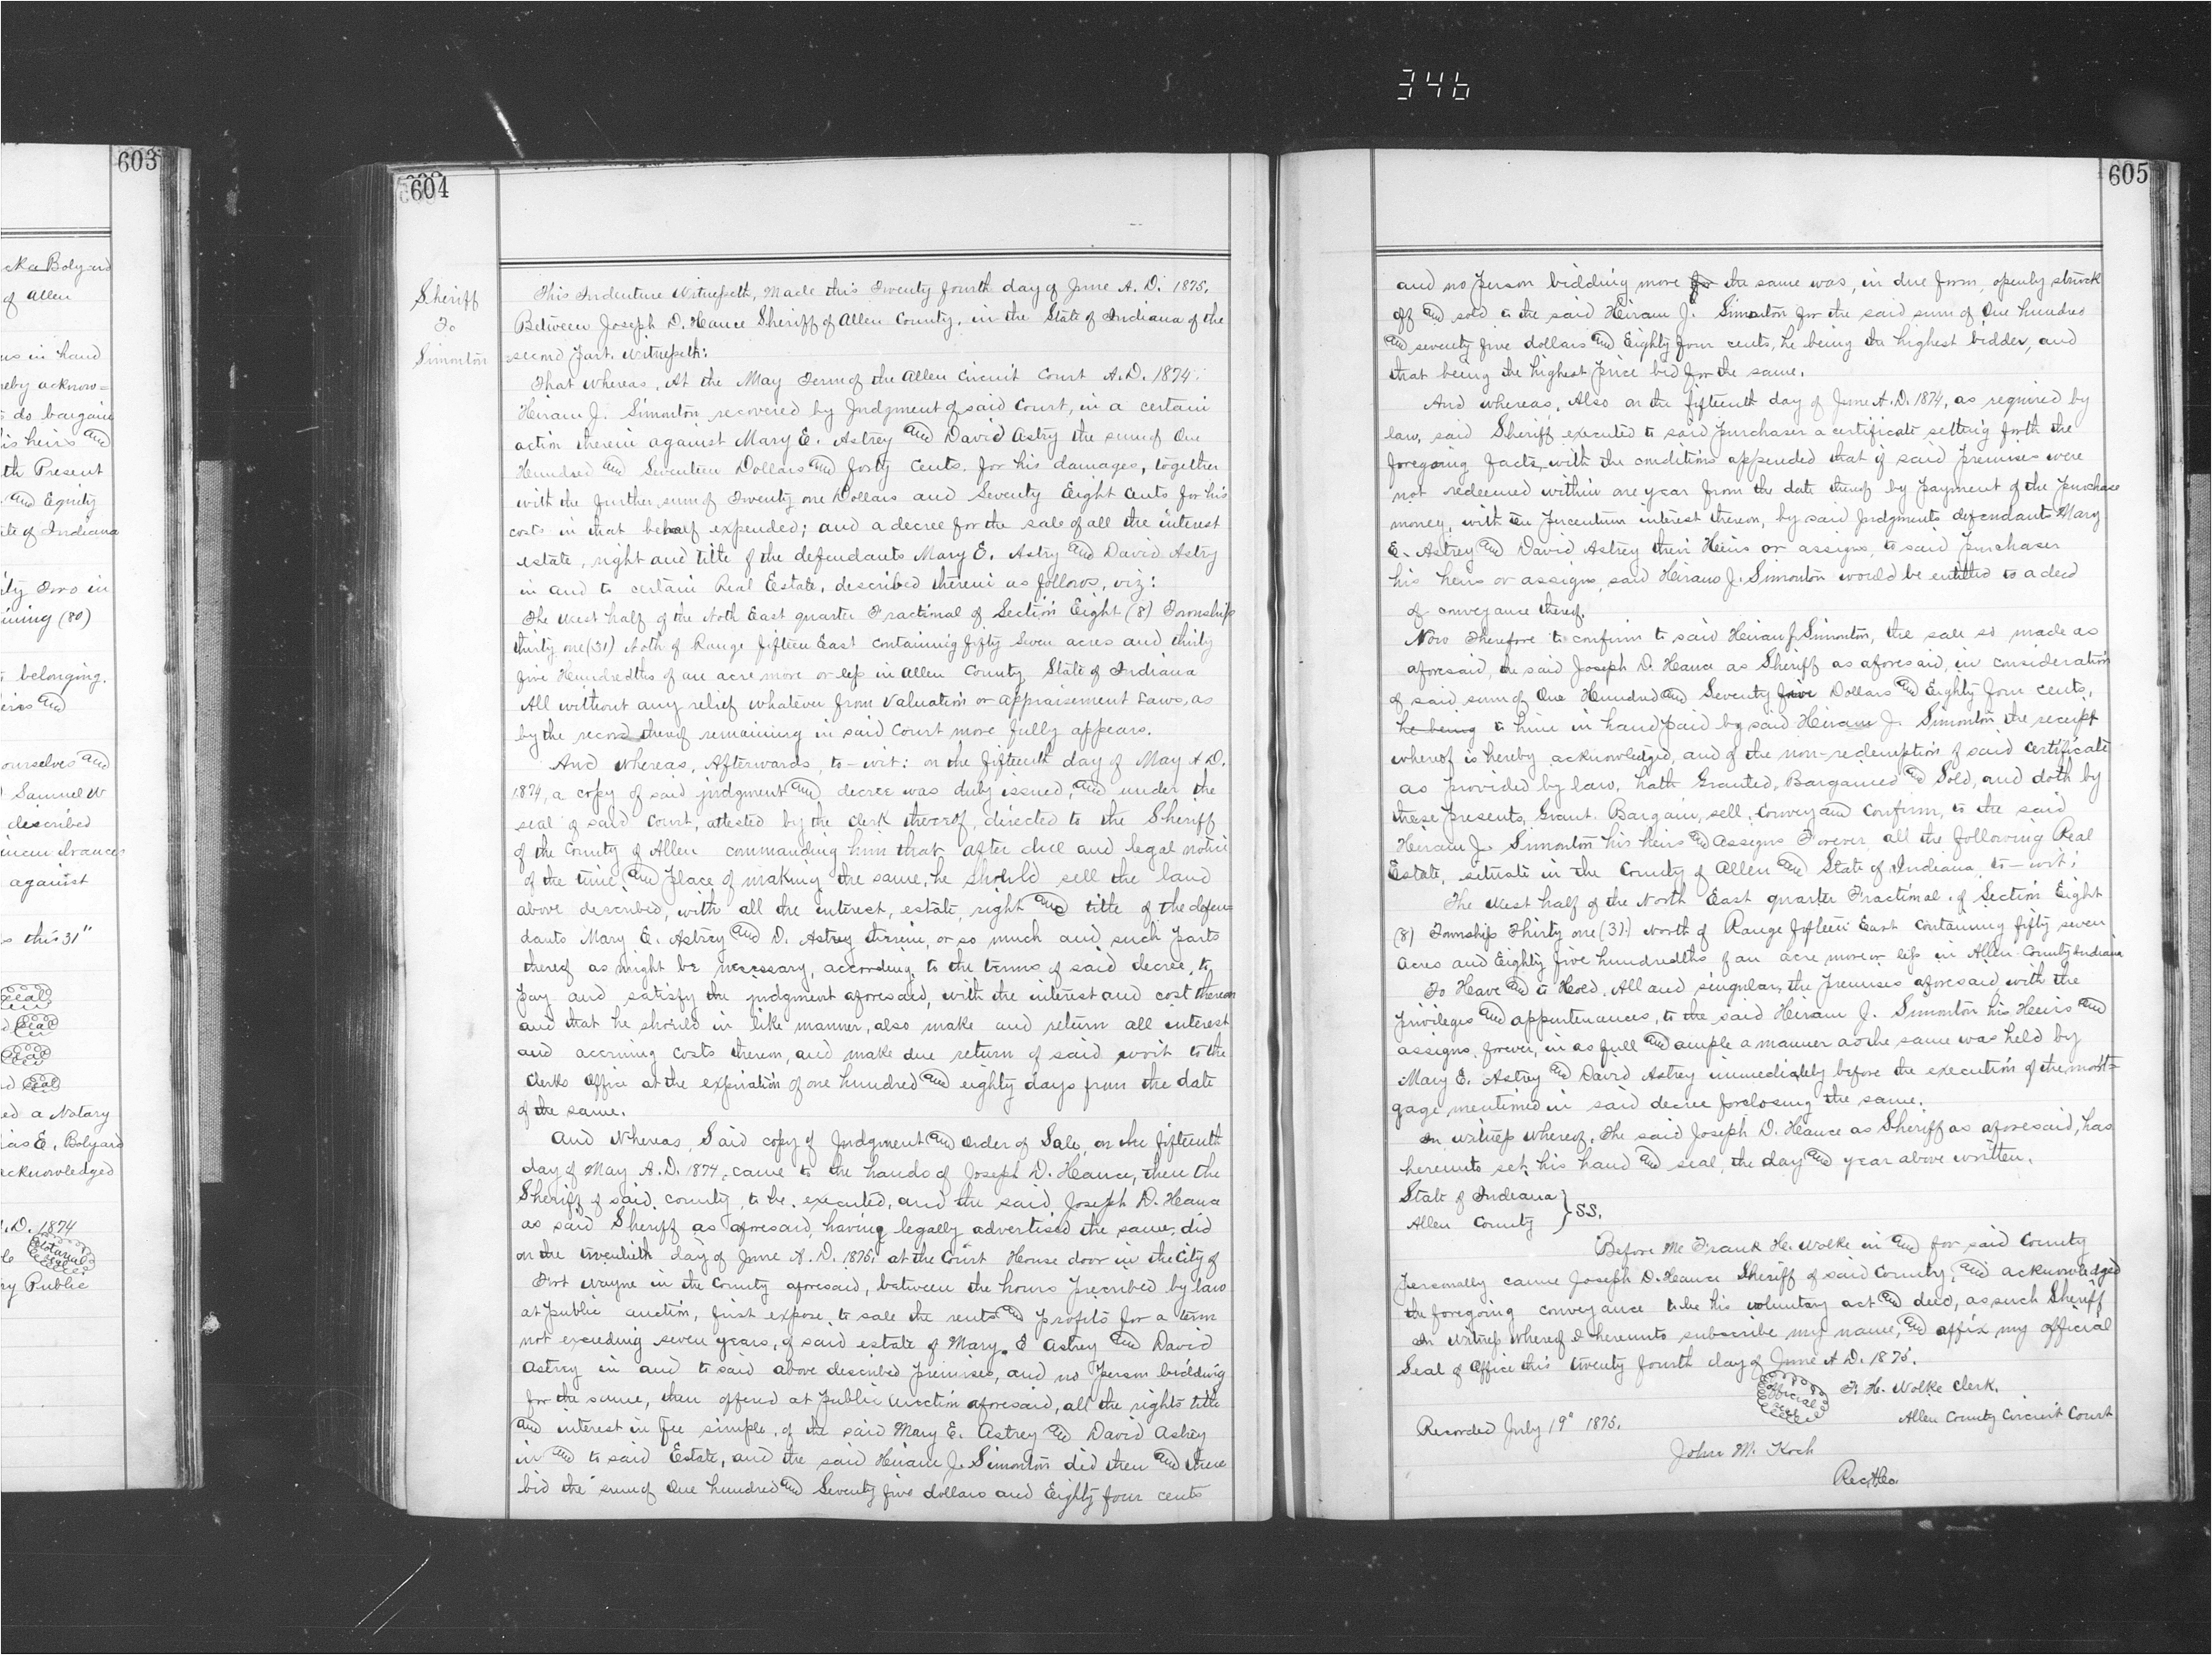 346
603
cka Bolyard
of Allen
us in hand
reby acknow=
s do bargain
his heirs and
th Present
and Equity
ate of Indiana
ty Two in
ining (80)
belonging.
eirs and
ourselves and
Samuel W
described
incumbrances
against
s this 31"
Seal
Seal
Seal
Seal
ed a Notary
ias E. Bolyard
acknowledged
A.D. 1874
Notarial Seal
ry Public
604
Sheriff
To
Simonton
This Indenture Witnesseth, Made this Twenty fourth day of June A. D. 1875.
Between Joseph D. Hance Sheriff of Allen County, in the State of Indiana of the
second Part. Witnesseth:
That whereas, At the May Term of the Allen Circuit Court A.D. 1874.
Heiram J. Simonton recovered by Judgment of said Court, in a certain
action therein against Mary E. Astrey and David Astry the sum of One
Hundred and Seventeen Dollars and forty Cents. for his damages, together
with the further sum of Twenty one Dollars and Seventy Eight Cents for his
costs in that behalf expended; and a decree for the sale of all the interest
estate, right and title of the defendants Mary E. Astry and David Astry
in and to certain Real Estate, described therein as follows, viz:
The West half of the Noth East quarter Fractional of Section Eight (8) Township
thirty one (31) Noth of Range fifteen East containing fifty Seven acres and thirty
five Hundredths of an acre more or less in Allen County State of Indiana
All without any relief whatever from Valuation or appraisement Laws, as
by the record thereof remaining in said Court more fully appears.
And Whereas, Afterwards, to-wit: on the fifteenth day of May A D.
1874, a copy of said judgment and decree was duly issued, and under the
seal of said Court, attested by the Clerk thereof, directed to the Sheriff
of the County of Allen commanding him that after due and legal notice
of the time, and place of making the same, he should sell the land
above described, with all the interest, estate, right and title of the defen=
dants Mary E. Astrey and D. Astrey therein, or so much and such parts
thereof as might be necessary, according to the terms of said decree, to
pay and satisfy the judgment aforesaid, with the interest and cost thereon
and that he should in like manner, also make and return all interest
and accruing costs thereon, and make due return of said writ to the
Clerks Office at the expiration of one hundred and eighty days from the date
of the same.
And Whereas, Said copy of Judgment and Order of Sale, on the fifteenth
day of May A.D. 1874, came to the hands of Joseph D. Hance, then the
Sheriff of said county, to be executed, and the said Joseph D. Hance
as said Sheriff as aforesaid, having legally advertised the same, did
on the twentieth day of June A. D. 1875, at the Court House door in the City of
Fort Wayne in the County aforesaid, between the hours prescribed by law
at public auction, first expose to sale the rents and profits for a term
not exceeding seven years, of said estate of Mary E Astrey and David
Astrey in and to said above described premises, and no Person bidding
for the same, then offered at public auction aforesaid, all the rights title
and interest in fee simple, of the said Mary E. Astrey and David Astrey
in and to said Estate, and the said Heiram J. Simonton did then and there
bid the sum of One hundred and Seventy five dollars and Eighty four cents
605
and no Person bidding more for the same was, in due form, openly struck
off and sold to the said Heiram J. Simonton for the said sum of One hundred
and seventy five dollars and Eighty four cents, he being the highest bidder, and
that being the highest Price bid for the same.
And whereas, Also on the fifteenth day of June A.D. 1874, as required by
law, said Sheriff executed to said purchaser a certificate setting forth the
foregoing facts, with the conditions appended that if said Premises were
not redeemed within one year from the date thereof by Payment of the Purchase
money, with ten percentum interest thereon, by said Judgments defendants Mary
E. Astrey and David Astrey their Heirs or assigns, to said purchaser
his heirs or assigns, said Heiram J. Simonton would be entitled to a deed
of conveyance thereof.
Now Therefore to confirm to said Heiram J. Simonton, the sale so made as
aforesaid, the said Joseph D. Hance as Sheriff as aforesaid, in consideration
of said sum of One Hundred and Seventy five Dollars and Eighty four cents,
he being to him in hand paid by said Heiram J. Simonton the receipt
whereof is hereby acknowledged, and of the non-redemption of said Certificate
as provided by law, hath Granted, Bargained and Sold, and doth by
these presents, Grant. Bargain, sell, Convey and Confirm, to the said
Heiram J. Simonton his heirs and Assigns Forever all the following Real
Estate, situate in the County of Allen and State of Indiana, to-wit:
The West half of the North East quarter Fractional of Section Eight
(8) Township Thirty one (31) North of Range fifteen East Containing fifty seven
Acres and Eighty five hundredths of an acre more or less in Allen County Indiana
To Have and to Hold, All and singular, the Premises aforesaid with the
privileges and appurtenances, to the said Heiram J. Simonton his Heirs and
assigns, forever, in as full and ample a manner as the same was held by
Mary E. Astrey and David Astrey immediately before the execution of the mort=
gage mentioned in said decree forclosing the same.
In Witness Whereof, The said Joseph D. Hance as Sheriff as aforesaid, has
hereunto set his hand and seal, the day and year above written.
State of Indiana }
Allen County } SS.
Before Me Frank H. Wolke in and for said County
Personally came Joseph D. Hance Sheriff of said County, and acknowledged
the foregoing conveyance to be his voluntary act and deed, as such Sheriff
In Witness whereof I hereunto subscribe my name, and affix my official
Seal of Office this twenty fourth day of June A D. 1875.
Official Seal
F. H. Wolke Clerk.
Allen County Circuit Court
Recorded July 19" 1875.
John M. Koch